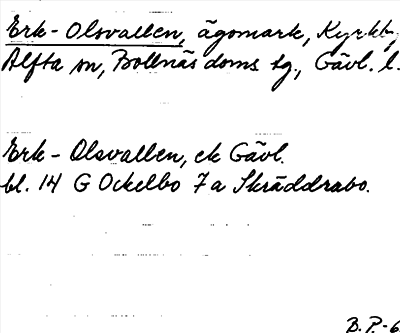 Erk-Olsvallen, ägomark, Kyrkby,
Alfta sn, Bollnäs doms tg., Gävl. l.
Erk-Olsvallen, ek Gävl.
bl. 14 G Ockelbo 7 a Skräddrabo.
B.P.-6